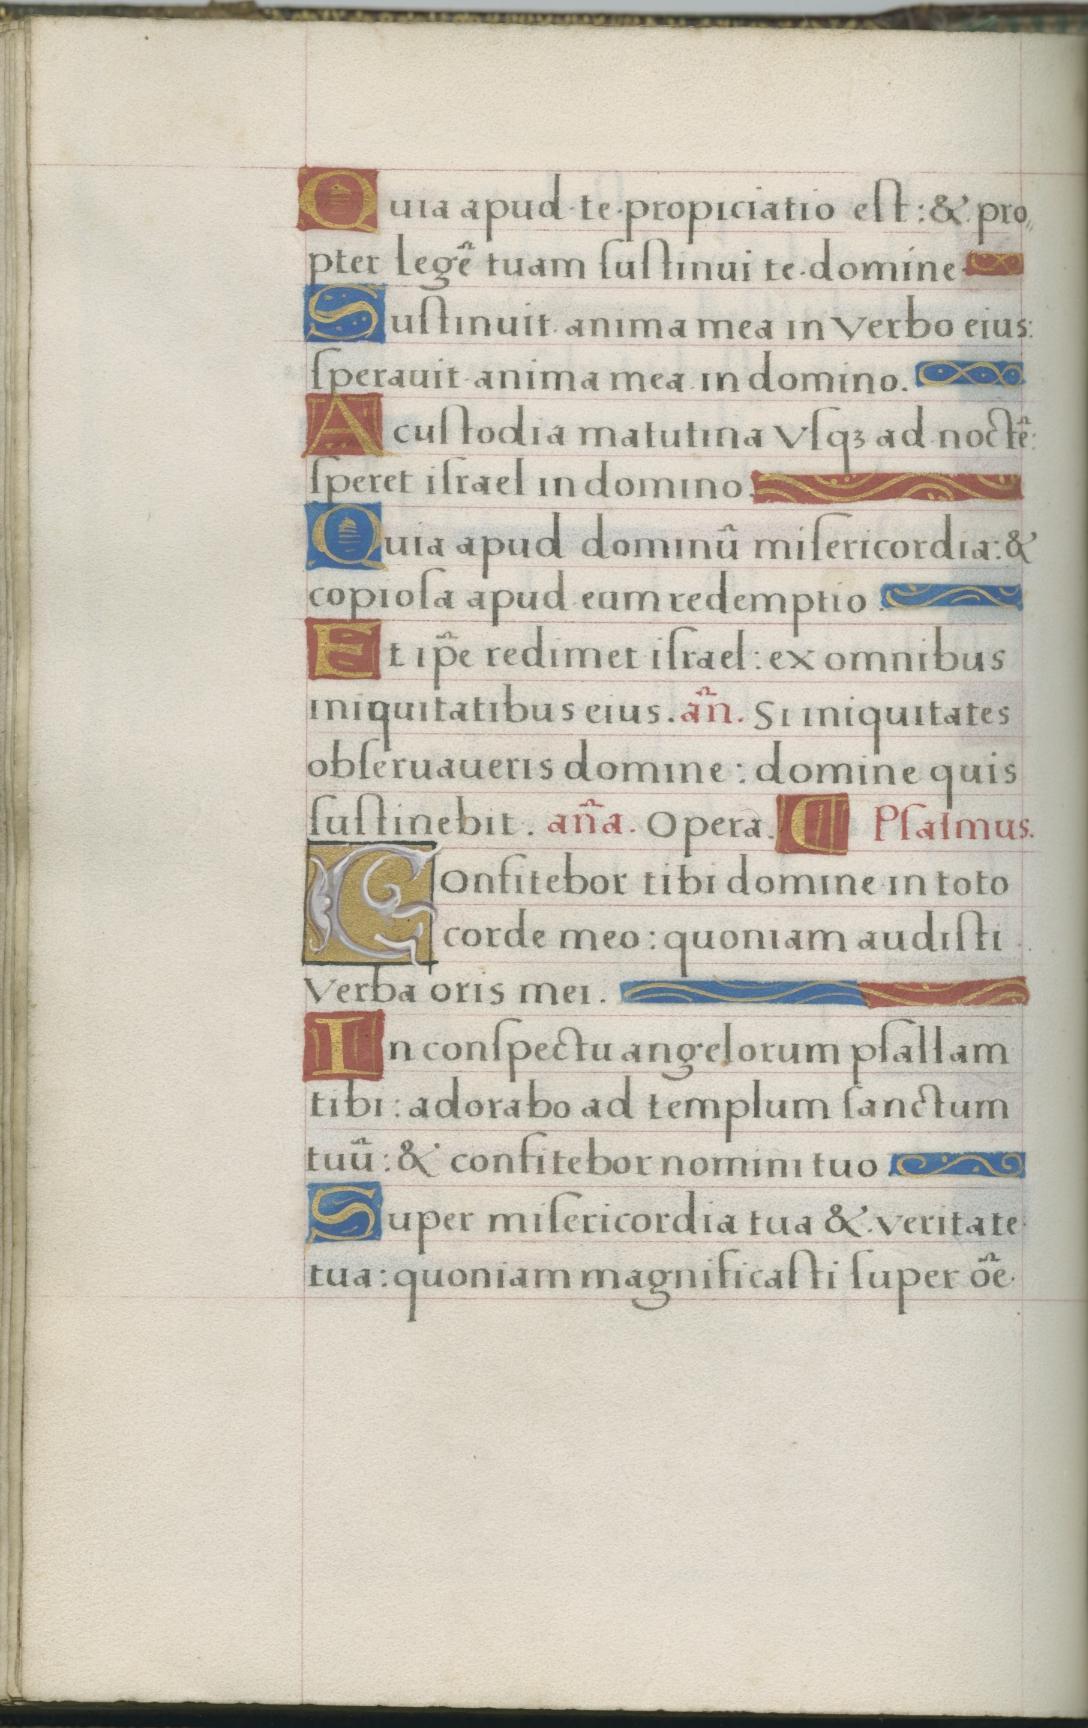 Quia apud te propiciatio eſt: & pro,,
pter legẽ tuam ſuſtinui te domine
Suſtinuit anima mea in verbo eius:
ſperauit anima mea in domino.
A cuſtodia matutina vſqꝫ ad noctẽ:
ſperet iſrael in domino.
Quia apud dominũ miſericordia: &
copioſa apud eum redemptio
Et ip̃e redimet iſrael: ex omnibus
iniquitatibus eius. añ. Si iniquitates
obſeruaueris domine: domine quis
ſuſtinebit. aña. Opera. ¶ Pſalmus.
Confitebor tibi domine in toto
corde meo: quoniam audiſti
verba oris mei.
In conſpectu angelorum pſallam
tibi: adorabo ad templum ſanctum
tuũ: & confitebor nomini tuo
Super miſericordia tua & veritate
tua: quoniam magnificaſti ſuper õe